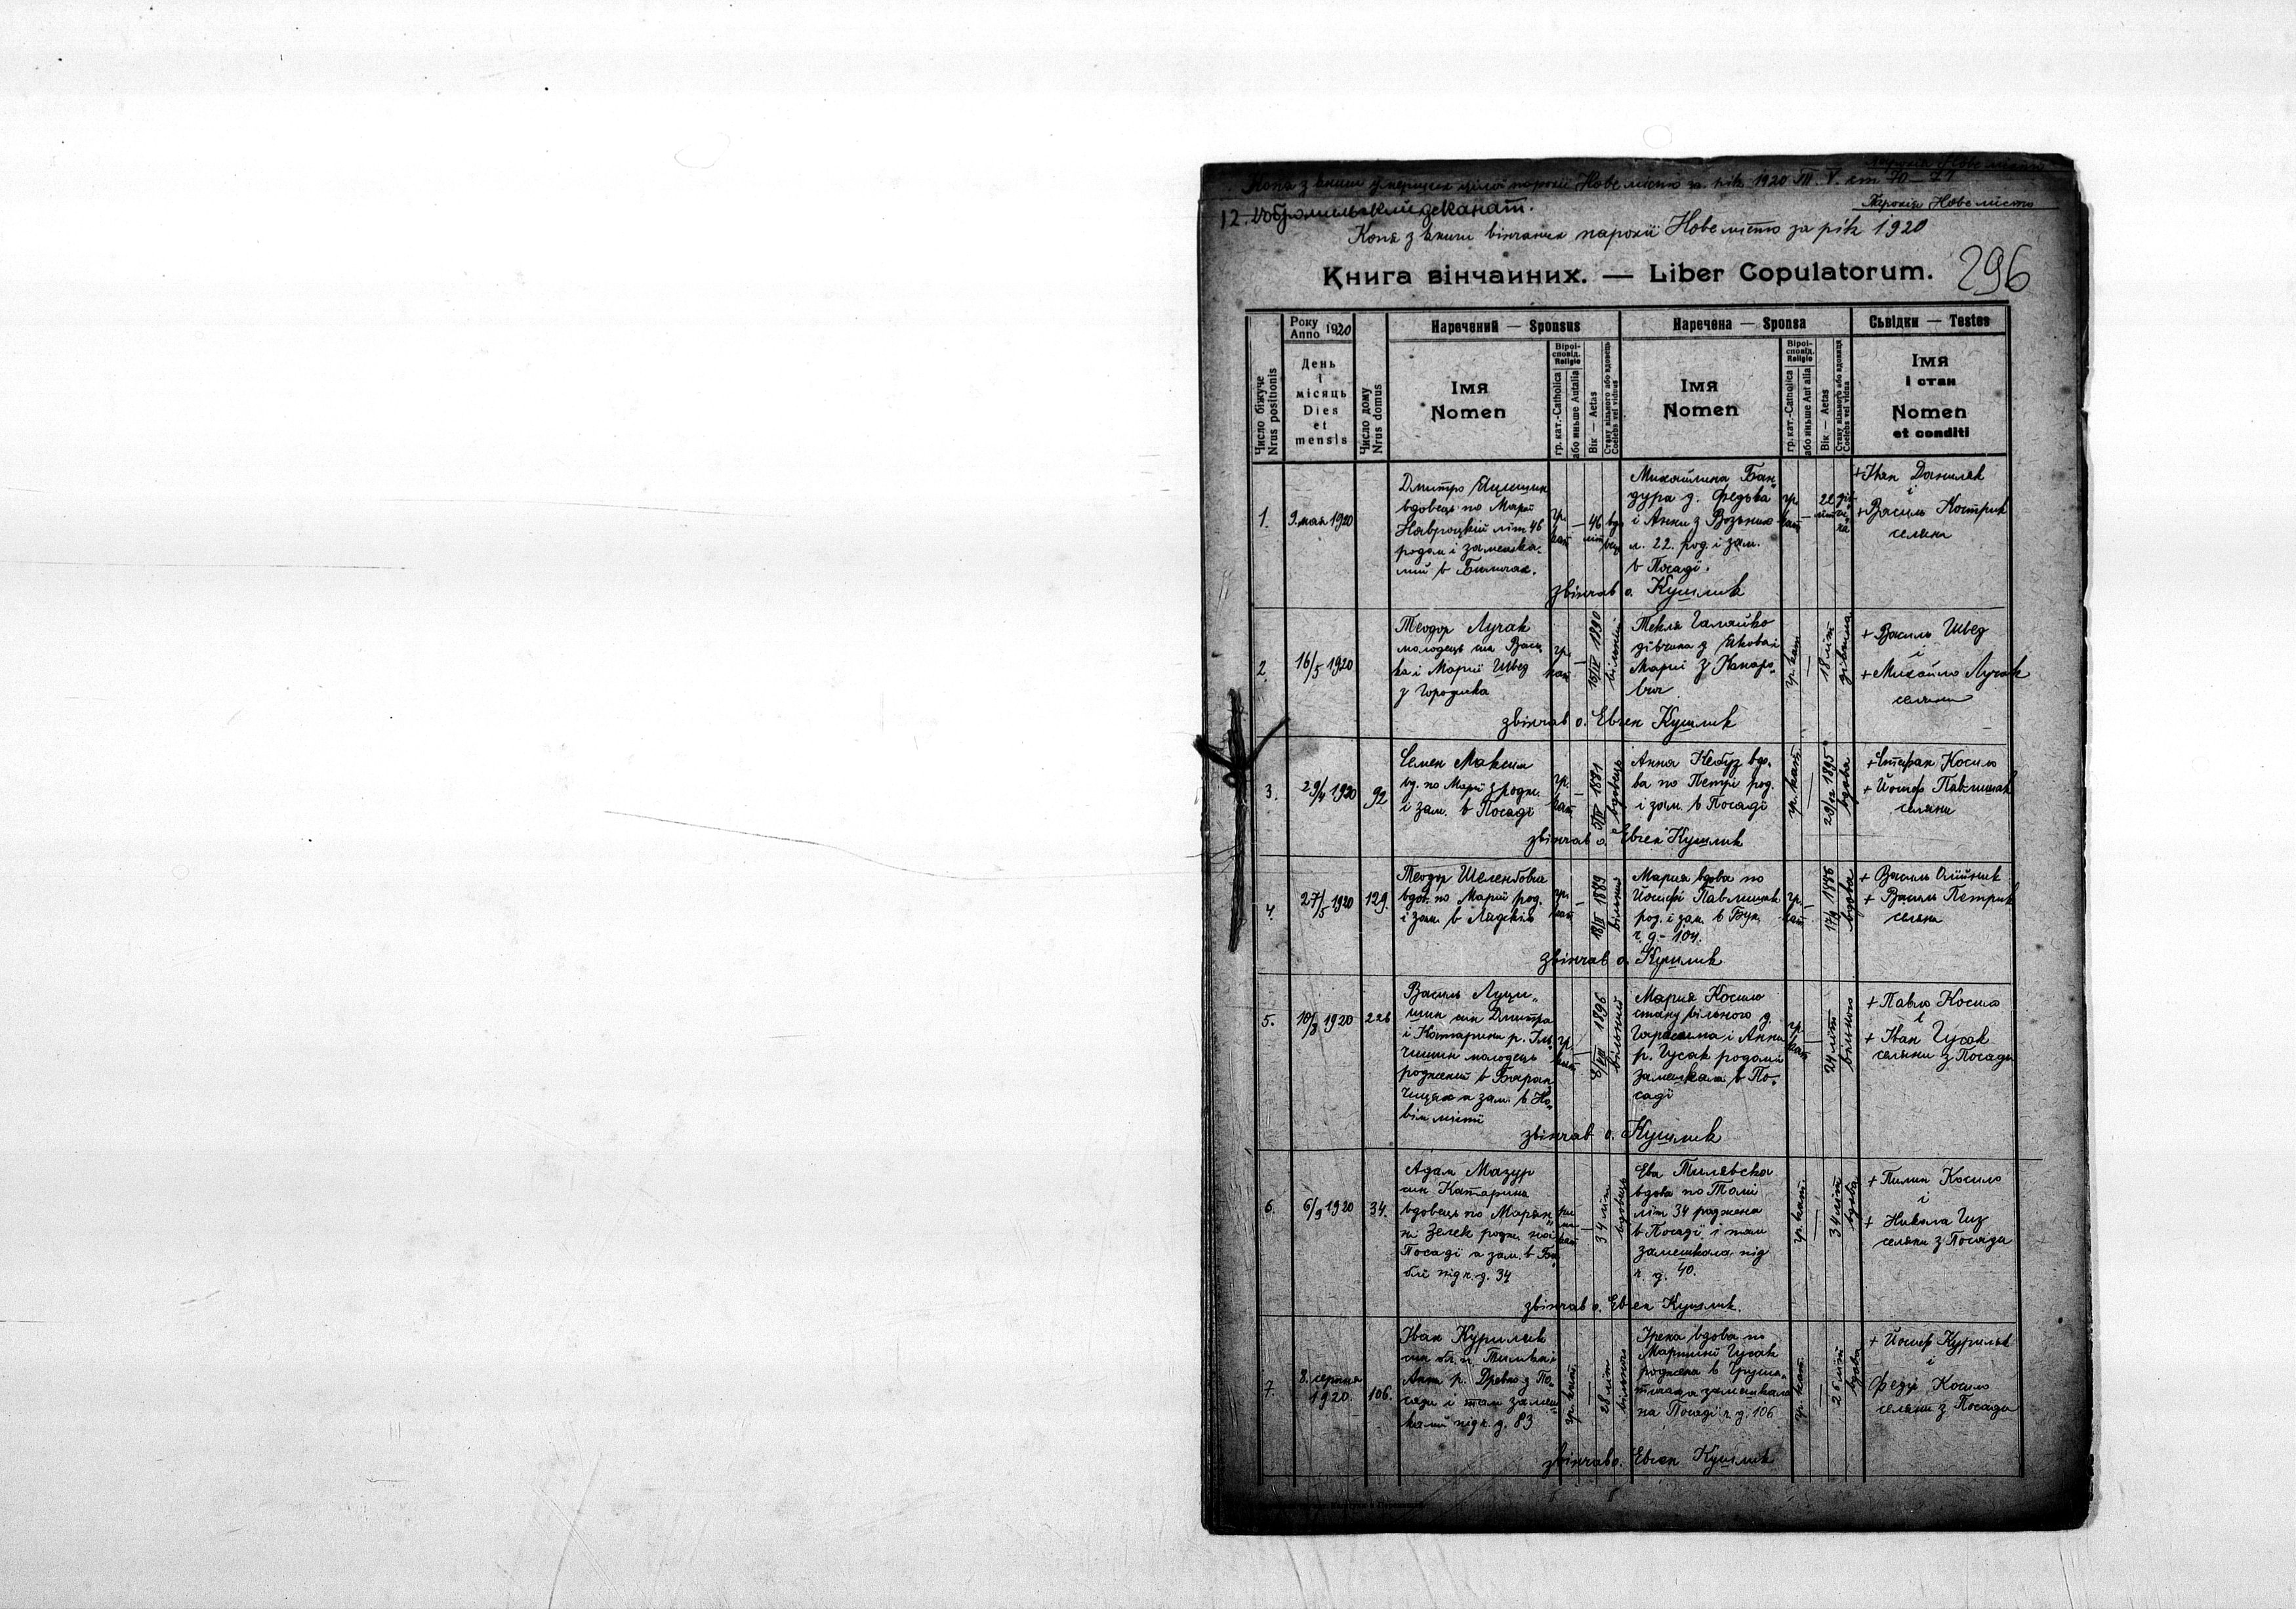 Парохія Нове місто
Копія з книги умерших цілої парохії Нове місто за рік 1920 III. V. ст 70-71
12. Добромильський деканат.
Парохія Нове місто
Копія з книги вінчаних парохії Нове місто за рік 1920
Книга вінчанних. — Liber Copulatorum.
296
Число біжуче
Nrus positionis
Року
Anno 1920
День
і
місяць
Dies
et
mensis
Число дому
Nrus domus
Наречений — Sponsus
Імя
Nomen
Віроі-
сповід.
Religio
гр. кат.-Catholica
або иньше Aut alia
Вік — Aetas
Стану вільного або вдовець
Coelebs vel viduus
Наречена — Sponsa
Імя
Nomen
Віроі-
сповід.
Religio
гр. кат.-Catholica
або иньше Aut alia
Вік — Aetas
Стану вільного або вдовиця
Coelebs vel vidua
Сьвідки — Testes
Імя
і стан
Nomen
et conditi
1.
9 мая 1920
Дмитро
вдовець по Марії
літ 46
родом і замешка-
лий в
гр.
кат
—
46
літ
вдо
вець
Михайлина Бан
дура д. Федька
і Анни з
л. 22. род. і зам.
в Посаді.
гр.
кат
—
22
літ
+ Іван Даниляк
і
+ Василь Кострик
селяни
звінчав о. Кушлик
2
16/5 1920
Теодор Лучак
молодець син Вась
ка і Марії Швед
з Городиска
гр.
кат
—
16/IV 1890
вільний
Текля Галайко
дівчина д. Якова і
Марії з
гр. кат
—
18 літ
дівчина
+ Василь Швед
і
+ Михайло Лучак
селяни
звінчав о. Евген Кушлик
3.
29/4 1920
92
Семен Максим
вд. по Марії з родж.
і зам. в Посаді
гр.
кат
—
1881
вдовець
Анна Кебуз вдо-
ва по Петрі род.
і зам. в Посаді
гр. кат.
—
1895
вдова
+ Стефан Косило
+ Йосиф Павлишак
селяни
звінчав о. Евген Кушлик
4.
27/5 1920
129.
Теодор
вдов. по Марії род.
і зам. в
гр.
кат
—
1889
вільний
Мария вдова по
Йосифі Павлишак
род. і зам. в
ч. д. - 104.
гр.
кат
—
1886
вдова
+ Василь Олійник
+ Василь Петрик
селяни
звінчав о. Кушлик
5.
10/8 1920
226
Василь Луци-
шин син Дмитра
і Катарини р. Іль-
чишин молодець
роджений в Баран-
чицях а зам. в Но-
вім місті
гр.
кат
—
1896
вільний
Мария Косило
стану вільного д.
Гарасима і Анни
р. Гусак родом і
замешкала в По-
саді
гр.
кат
—
24 літ
вільного
+ Павло Косило
і
+ Іван Гусак
селяни з Посади
звінчав о. Кушлик
6.
6/9 1920
34.
Адам Мазур
син Катарина
вдовець по Мариян
ні Зелек родж. на
Посаді а зам. в
під ч. д. 34
кат
—
34 літ
вдовець
Ева
вдова по
літ 34 роджена
в Посаді і там
замешкала під
ч. д. 40.
гр. кат.
—
34 літ
вдова
+ Пилип Косило
і
+ Никола Гиз
селяни з Посади
звінчав о. Евген Кушлик.
7.
8. серпня
1920
106.
Іван Куриляк
син бл. п. Тимка і
Анни р. Древко з По-
сади і там замеш-
калий під ч. д. 83
гр. кат.
—
28 літ
вільного
Ірена вдова по
Мартині Гусак
роджена в Груша-
тичах а замешкала
на Посаді ч. д. 106
гр. кат.
—
26 літ
вдова
+ Йосиф Куриляк
і
Федір Косило
селяни з Посади
звінчав о. Евген Кушлик